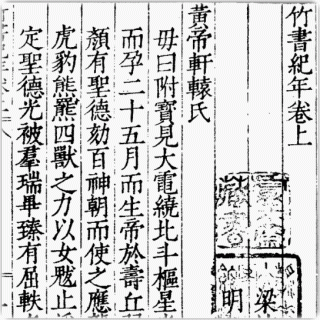 竹書紀年卷上
梁
明
黃帝軒轅氏
毋曰附寶見大電繞北斗樞星
而孕二十五月而生帝於壽丘
顏有聖德劾百神朝而使之應
虎豹熊羆四獸之力以女魃止
定聖德光被羣瑞畢臻有屈軼